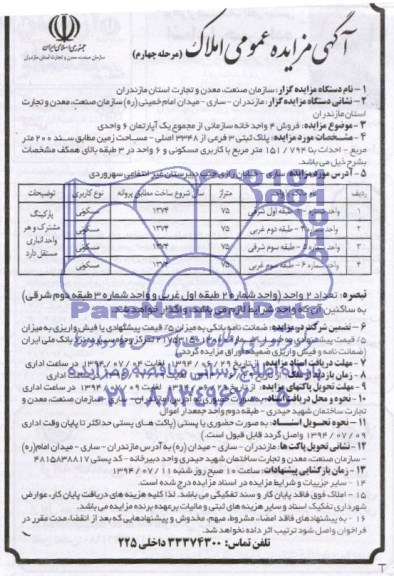 جمهوری اسلامی ایران
سازمان صنعت، معدن و تجارت استان مازندران
آگهی مزایده عمومی املاک (مرحله چهارم)
۱ – نام دستگاه مزایده گزار: سازمان صنعت، معدن و تجارت استان مازندران
۲ – نشانی دستگاه مزایده گزار: مازندران – ساری – میدان امام خمینی (ره) سازمان صنعت، معدن و تجارت
استان مازندران
۳ – موضوع مزایده: فروش ۴ واحد خانه سازمانی از مجموع یک آپارتمان ۶ واحدی
۴ – مشخصات مورد مزایده: پلاک ثبتی ۳ فرعی از ۳۳۴۸ اصلی – مساحت زمین مطابق سند ۲۰۰ متر
مربع – احداث بنا ۷۹۴ / ۱۵۱ متر مربع با کاربری مسکونی و ۶ واحد در ۳ طبقه بالای همکف مشخصات
بشرح ذیل می باشد.
۵ – آدرس مورد مزایده: ساری – خیابان رازی جنب دبیرستان غیر انتفاعی سهروردی
ردیف متراژ سال شروع ساخت مطابق پروانه نوع کاربری توضیحات
۱ واحد شماره ۱ – طبقه اول شرقی ۷۵ ۱۳۷۴ مسکونی پارکینگ مشترک و هر واحد انباری مستقل دارد
۲ واحد شماره ۴ – طبقه دوم غربی ۷۵ ۱۳۷۴ مسکونی
۳ واحد شماره ۵ – طبقه سوم شرقی ۷۵ ۱۳۷۴ مسکونی
۴ واحد شماره ۶ – طبقه سوم غربی ۷۵ ۱۳۷۴ مسکونی
تبصره: تعداد ۲ واحد (واحد شماره ۲ طبقه اول غربی و واحد شماره ۳ طبقه دوم شرقی)
به ساکنین آن که واجد شرایط لازم می باشد، واگذار خواهد شد.
۶ – تضمین شرکت در مزایده: ضمانت نامه بانکی به میزان ۵٪ قیمت پیشنهادی یا فیش واریزی به میزان
۵٪ قیمت پیشنهادی به حساب شماره تمرکز وجوه سپرده نزد بانک ملی ایران
(ضمانت نامه و فیش واریزی ضمیمه اوراق مزایده گردد)
۷ – مهلت دریافت اسناد مزایده: از تاریخ لغایت ۱۳۹۴/۰۷/۰۴ در ساعت اداری
۸ – زمان بازدید از ملک: در ساعت اداری
۹ – مهلت تحویل پاکتهای مزایده: از تاریخ لغایت ۱۳۹۴/۰۷/۰۹ در ساعت اداری
۱۰ – نحوه و محل دریافت اسناد: به صورت حضوری به آدرس مازندران – ساری – سازمان صنعت، معدن و
تجارت ساختمان شهید حیدری – طبقه دوم واحد جمعدار اموال
۱۱ – نحوه تحویل اسناد: به صورت حضوری یا پستی (پاکت های پستی حداکثر تا پایان وقت اداری
۱۳۹۴/۰۷/۰۹ واصل گردد قابل قبول است.)
۱۲ – نشانی تحویل پاکت ها: مازندران – ساری – میدان (ره) به آدرس مازندران – ساری – میدان امام (ره)
– سازمان صنعت، معدن و تجارت ساختمان شهید حیدری واحد دبیرخانه – کد پستی ۴۸۱۵۸۳۸۸۱۷
۱۳ – زمان بازگشایی پیشنهادات: ساعت ۱۰ صبح روز شنبه ۱۳۹۴/۰۷/۱۱
۱۴ – سایر جزییات و شرایط مزایده در اسناد مزایده درج شده است.
۱۵ – املاک فوق فاقد پایان کار و سند تفکیکی می باشد. لذا کلیه هزینه های دریافت پایان کار، عوارض
شهرداری تفکیک اسناد و سایر هزینه های ثبتی و مالیات برعهده برنده مزایده می باشد.
۱۶ – به پیشنهادهای فاقد امضا، مشروط، مبهم، مخدوش و پیشنهادهایی که بعد از انقضاء مدت مقرر در
فراخوان واصل شود ترتیب اثر داده نخواهد شد.
تلفن تماس: ۳۳۳۷۴۳۰۰ داخلی ۲۲۵